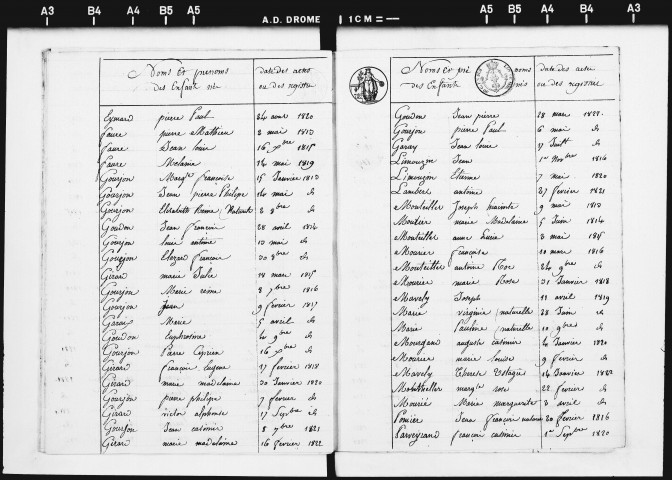 A3 B4 A4 B5 A5 A.D. DROME 1CM= A5 B5 A4 B4 A3
Noms et prenoms
des Enfants nés
date des actes
ou des registres
Eymard pierre Paul 24 aout 1820
Faure pierre Mathieu 2 mai 1813
Faure Jean louis 16 xbre 1815
Faure Melanie 14 mai 1819
Gourjon Margte francoise 15 Janvier 1813
Gourjon Jean pierre Philipe 14 mai ds
Gourjon Elizabeth 2 8bre ds
Goudon Jean francois 28 avril 1814
Gourjon louis antoine 10 mai ds
Gourjon Elezar francois 30 8bre ds
Girard marie Julie 18 mars 1815
Gourjon Marie reine 2 7bre 1816
Gourjon Jean 9 fevrier 1817
Garaix Marie 5 avril ds
Goudon Euphrosine 4 9bre ds
Gourjon Pierre Ciprien 16 xbre ds
Girard francois eugene 27 fevrier 1818
Girard marie madelaine 30 Janvier 1820
Gourjon pierre philipe 7 fevrier ds
Girard victor alphonse 17 Sepbre ds
Gourjon Jean casimir 8 7bre 1821
Girard marie madelaine 16 fevrier 1822
Noms et pré noms
des Enfants nés
date des actes
ou des registres
Goudon Jean pierre 28 mars 1822
Gourjon pierre Paul 6 mai ds
Garay Jean louis 17 Juillt ds
Limouzin Jean 1er Novbre 1816
Limouzin Etienne 7 mai 1820
Lambert antoine 27 fevrier 1821
Monteiller Joseph hiacinte 9 mai 1813
Mourier marie Madelaine 5 Juin 1814
Monteiller anne Lucie 3 mai 1815
Mourier francoise 10 mars 1816
Monteiller antoine Roc 24 9bre ds
Mourier marie Rose 31 Janvier 1818
Mavely Joseph 11 avril 1819
Marie virginie (naturelle) 28 Juin ds
Marie Pauline (naturelle) 10 9bre ds
Mourgand auguste casimir 4 Janvier 1820
Mourier marie louise 9 fevrier ds
Mavely Therese Eulagie 14 Janvier 1822
Monteiller margte rose 22 fevrier ds
Mourié Marie marguerite 3 avril ds
Ponier Jean francois naturel 20 fevrier 1816
Parveyrand francois casimir 1er Sepbre 1820